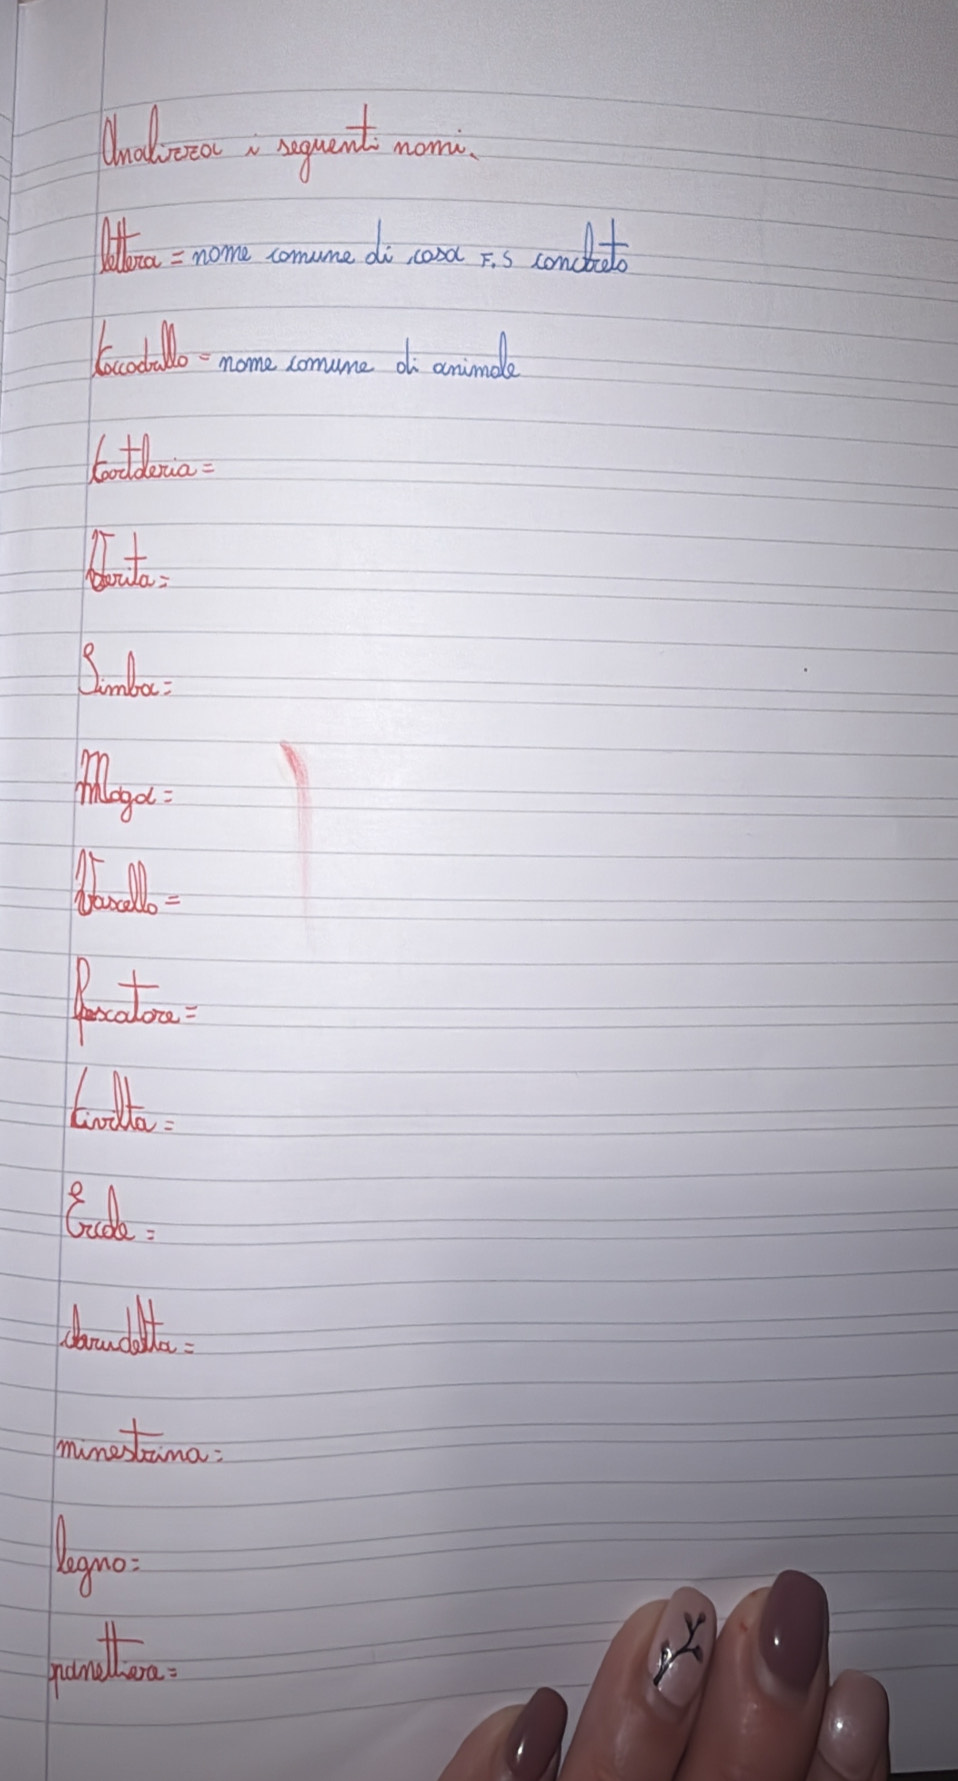 Analizza i seguenti nomi.
lettera = nome comune di cosa F. S concreto
Coccodrillo = nome comune di animale
Verità =
Simba =
Maga =
Vascello =
Pescatore =
Civiltà =
minestrina =
legno =
panettiera =